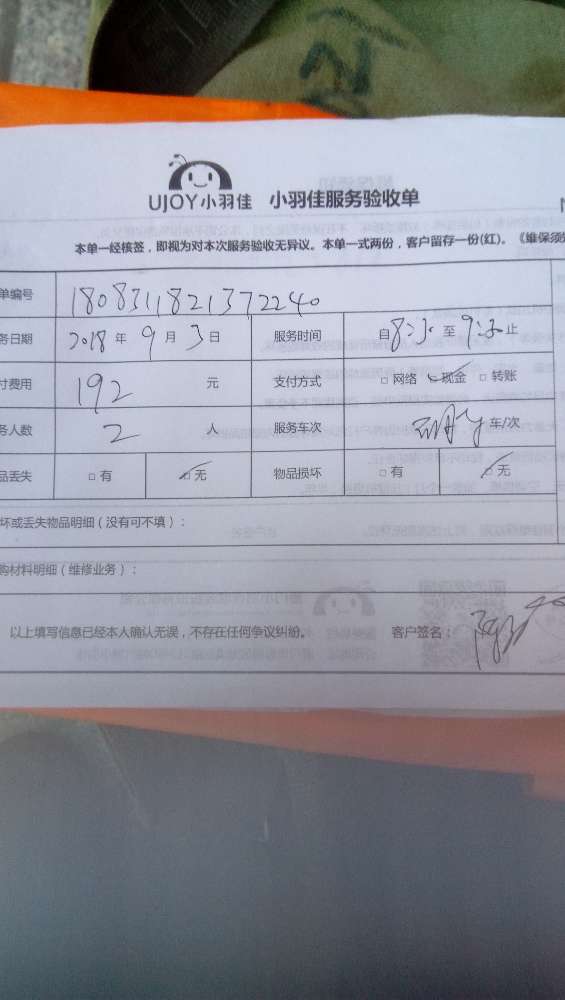 UJOY小羽佳 小羽佳服务验收单
本单一经核签，即视为对本次服务验收无异议。本单一式两份，客户留存一份(红)。《维保须
单编号 1808311821372240
务日期 2018 年 9 月 3 日 服务时间 自 8:30 至 9:30 止
付费用 192 元 支付方式 □ 网络 ☑ 现金 □ 转账
务人数 2 人 服务车次 车/次
品丢失 □ 有 ☑ 无 物品损坏 □ 有 ☑ 无
坏或丢失物品明细（没有可不填）：
购材料明细（维修业务）：
以上填写信息已经本人确认无误，不存在任何争议纠纷。 客户签名：